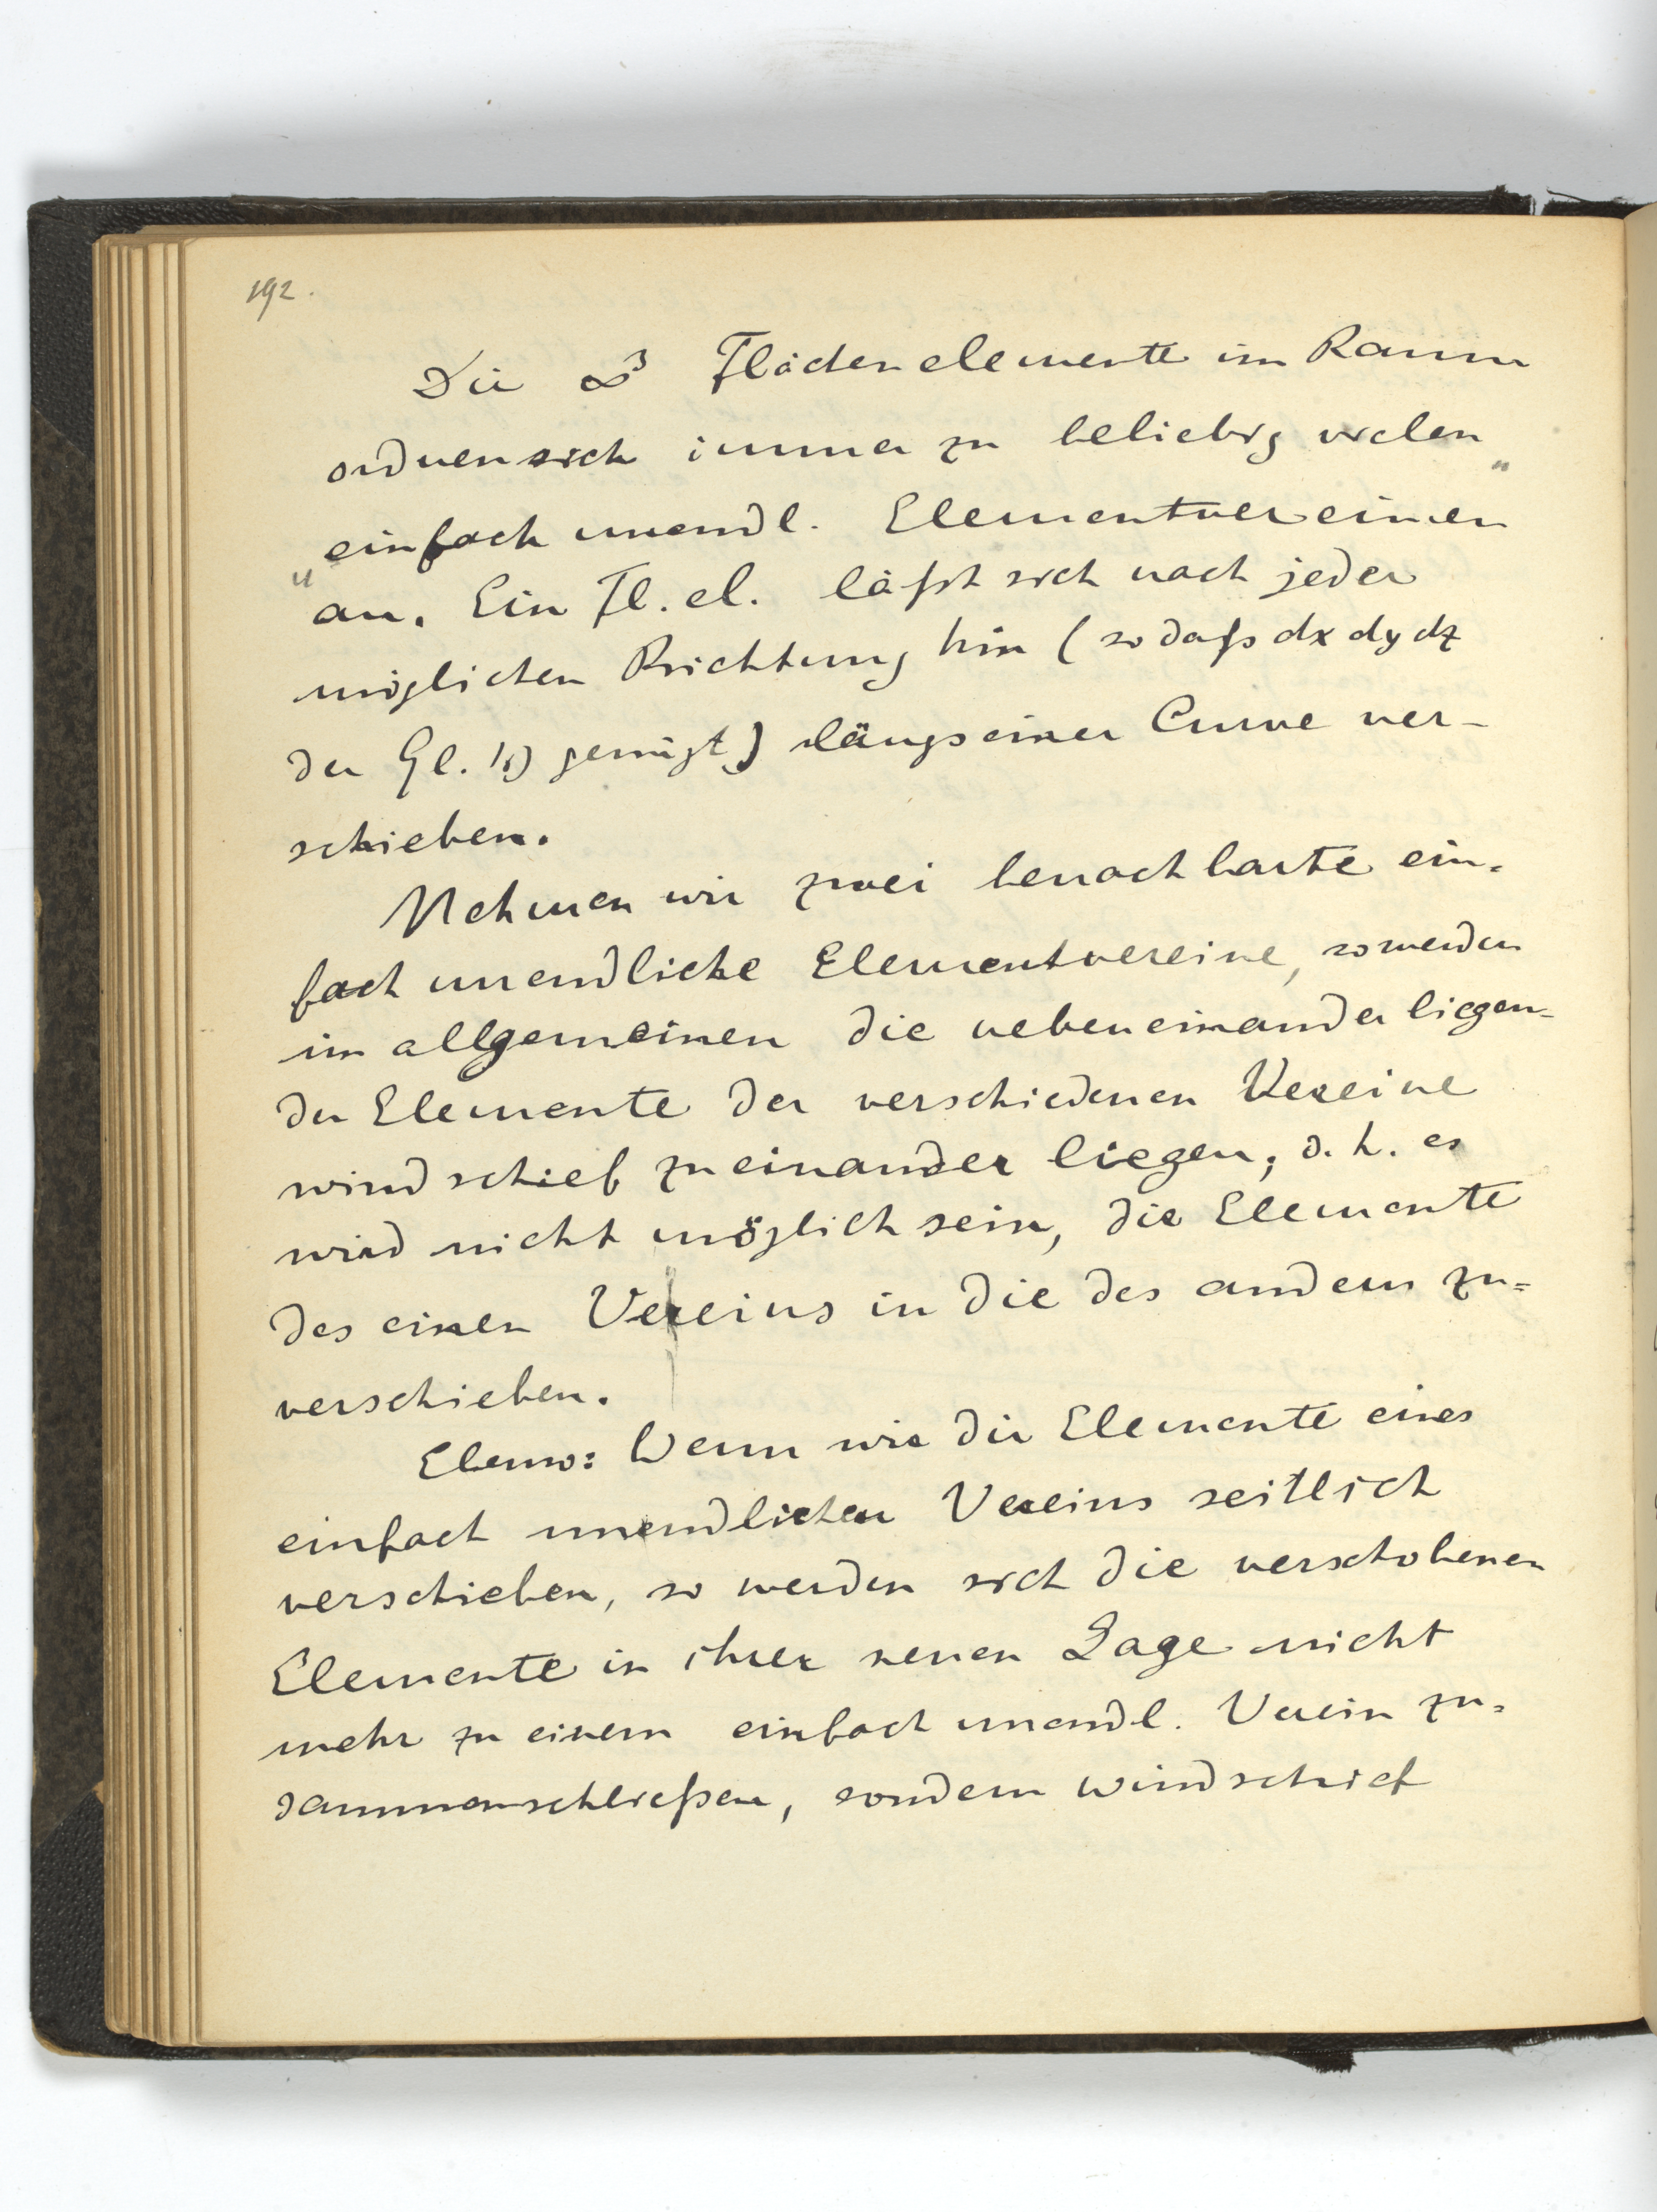 192.
Die ∞³ Flächenelemente im Raum
ordnen sich immer zu beliebig vielen
„einfach unendl. Elementvereinen"
an. Ein Fl. el. läßt sich nach jeder
möglichen Richtung hin (sodaß dx dy dz
der Gl. 1) genügt) längs einer Curve ver-
schieben.
Nehmen wir zwei benachbarte ein-
fach unendliche Elementvereine, so werden
im allgemeinen die nebeneinander liegen-
den Elemente der verschiedenen Vereine
windschief zu einander liegen; d. h. es
wird nicht möglich sein, die Elemente
des einen Vereins in die des andern zu=
verschieben.
Ebenso: Wenn wir die Elemente eines
einfach unendlichen Vereins seitlich
verschieben, so werden sich die verschobenen
Elemente in ihrer neuen Lage nicht
mehr zu einem einfach unendl. Verein zu=
sammenschließen, sondern windschief